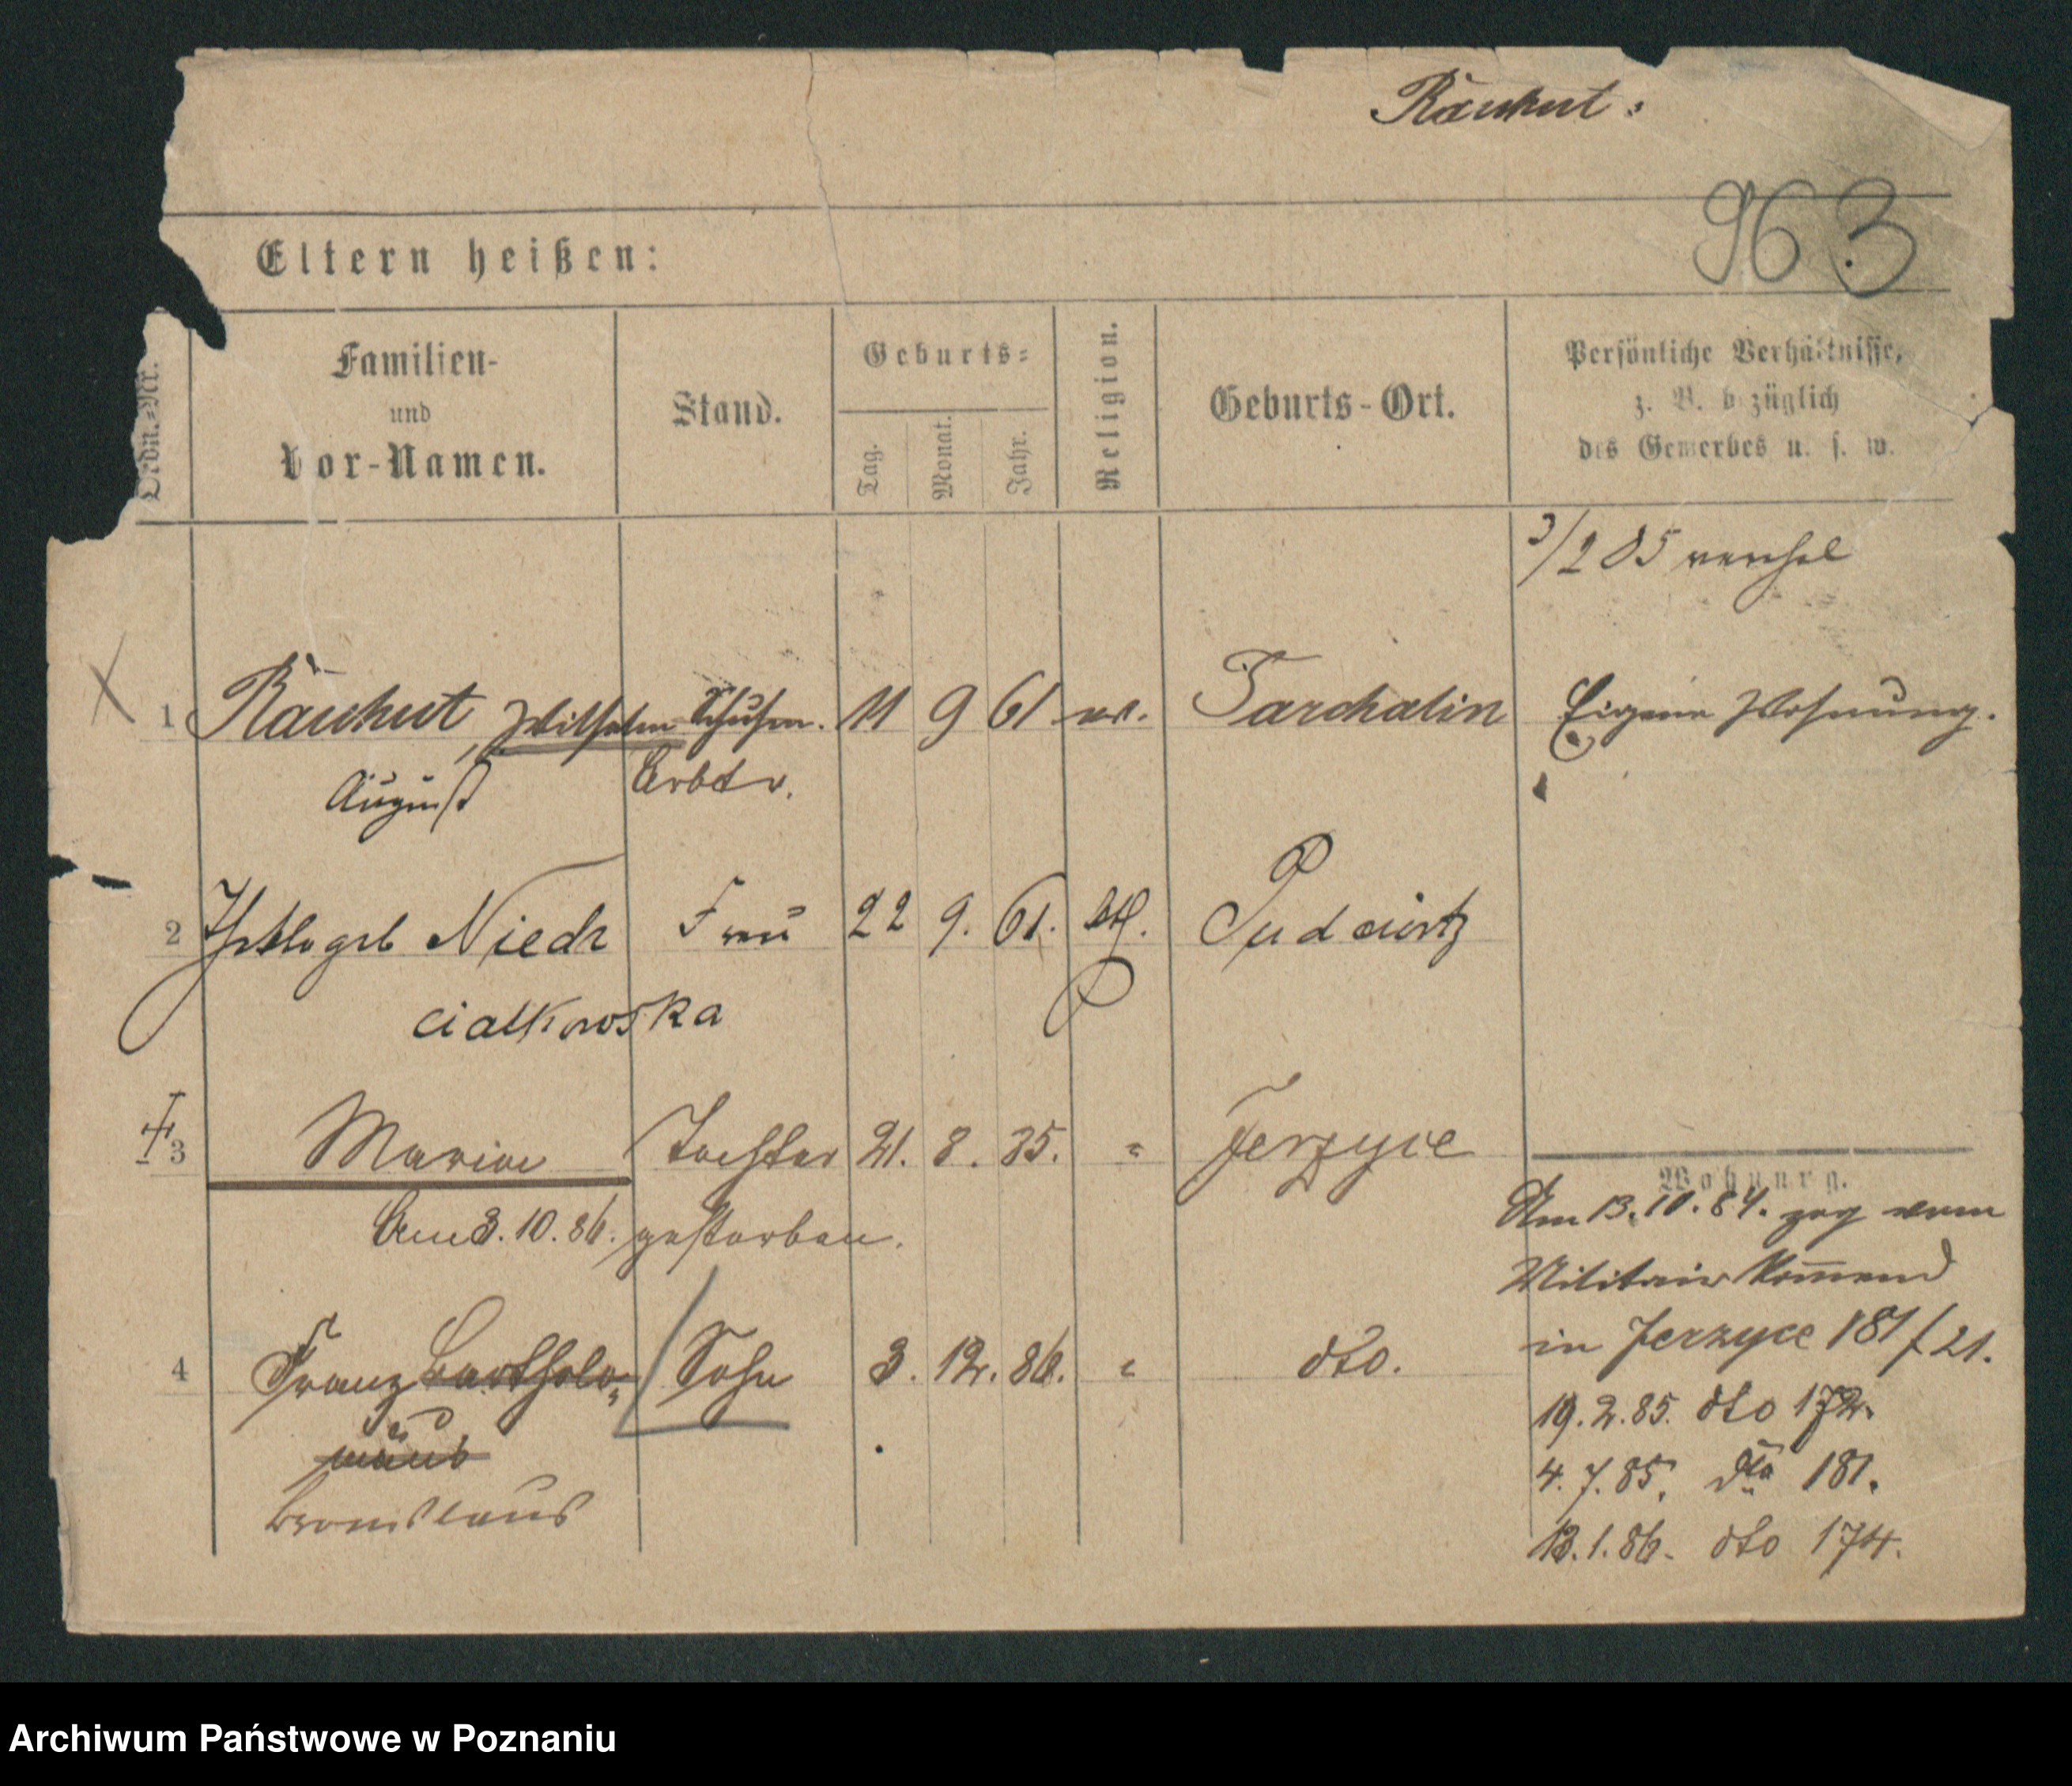 Rauhut
963
Eltern heißen:
Ordn.-Nr.
Familien-
und
Vor-Namen.
Stand.
Geburts-
Tag.
Monat.
Jahr.
Religion.
Geburts-Ort.
Persönliche Verhältnisse,
z. B. bezüglich
des Gewerbes u. s. w.
3/2 85 verehel
1 Rauhut Wilhelm Schuhm. 11 9 61 ev. Tarchalin Eigene Wohnung.
August Arbtr.
2 geb Niedz Frau 22 9. 61. kth. Pudewitz
cialkowska
3 Marie Tochter 21. 8. 85. " Jerzyce
Am 3. 10. 86. gestorben.
4 Franz Bartholo- Sohn 3. 12. 86. " dto.
mäus
Bronislaus
Wohnung.
Am 13.10.84. zog vom
Militair kommend
in Jerzyce 181/21.
19.2.85. dto 172.
4.7.85. dto 181.
13.1.86. dto 174.
Archiwum Państwowe w Poznaniu